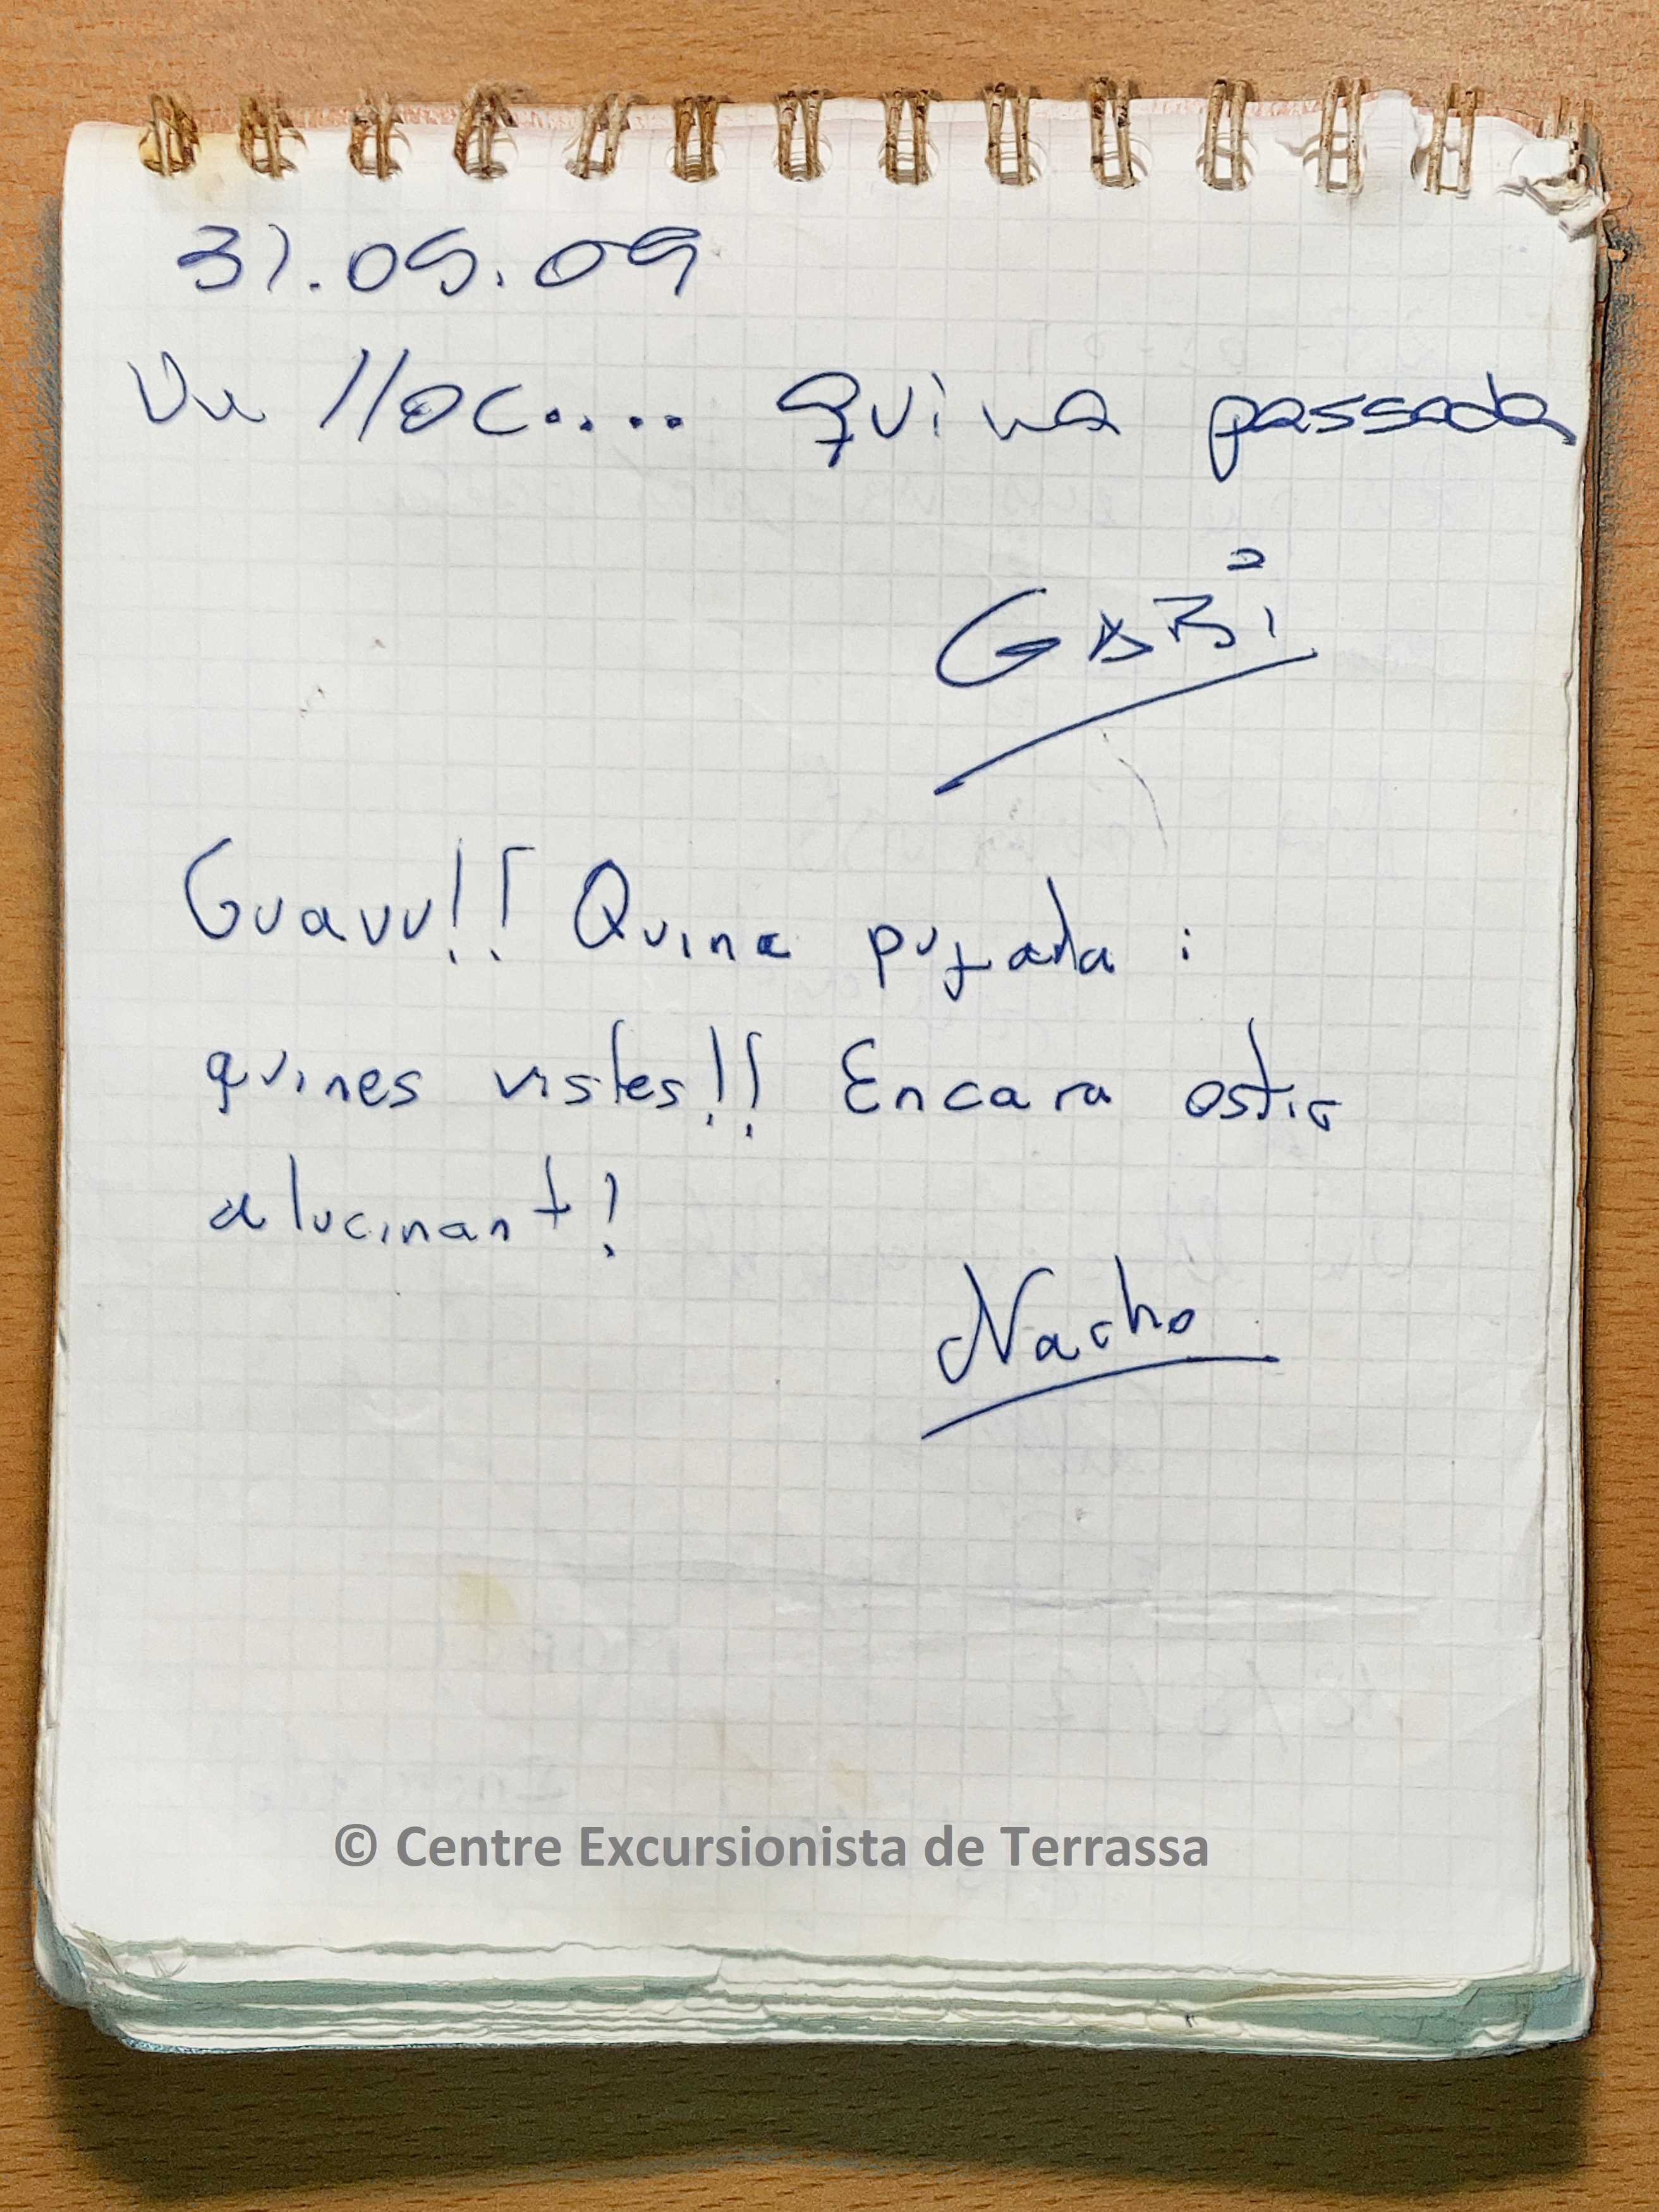 31.05.09
Un lloc.... quina passada
GABI
Guauu!! Quina pujada i
quines vistes!! Encara ostic
alucinant!
Nacho
© Centre Excursionista de Terrassa